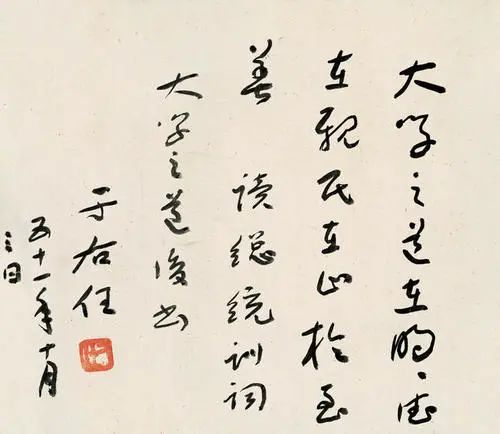 大学之道在明〻德
在親民在止於至
善 读総統训词
大学之道後书
于右任
五十一年十月
三日